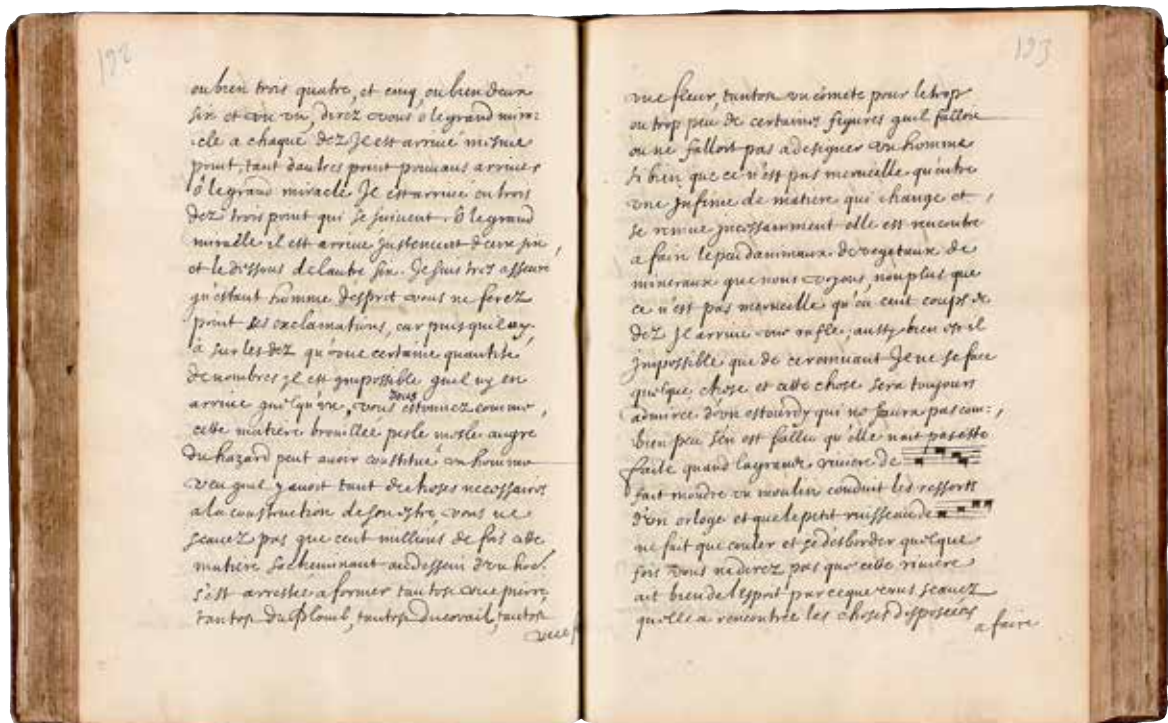 192
ou bien trois quatre, et cinq, ou bien deux
six et vn vn, direz vous ô le grand mira:
:cle a chaque dez Jl est arriué mesme
point, tant dautres point pouuans arriuer
ô le grand miracle Jl est arriue en trois
dez trois point qui se suiuent. ô le grand
miralle il est arriue justement deux six,
et le dessous de lautre six. Je suis tres asseuré
qu'estant homme desprit vous ne ferez
point ses exclamations, car puis quil ny
à sur les dez qu'vne certaine quantité
de nombres jl est jmpossible quil ny en
arriue quelqu'vn, vous vous estonnez comme,
cette matiere brouillée pesle mesle augre
du hazard peut auoir constitué vn homme
veu quil y auoit tant de choses necessaires
a la construction de son estre, vous ne
scauez pas que cent millions de fois cette
matiere sacheminant au dessein d'vn hoe.
s'est arrestée a former tantost vne pierre
tantost du Plomb, tantost du corail, tantost
vne f
193
vne fleur, tantost vn comete pour le trop
ou trop peu de certaines figures quil falloit
ou ne falloit pas a designer vn homme
si bien que ce n'est pas merueille qu'entre
vne jnfinie de matiere qui change et,
se remue jncessamment elle est rencontre
a faire le peu danimaux de vegetaux de
mineraux que nous voyons, non plus que
ce n'est pas merueille qu'en cent coups de
dez Jl arriue vne rafle, aussy bien est il
jmpossible que de ce remuant Jl ne se face
quelque chose et cette chose sera toujours
admirée d'vn estourdy qui ne scaura pas com:,
bien peu s'en est fallu qu'elle nait pas este
faite quand la grande riuiere de
fait moudre vn moulin conduit les ressorts
d'vn orloge et que le petit ruisseau de
ne fait que couler et se desborder quelque
fois vous ne direz pas que cette riuiere
ait bien de l'esprit parce que vous scauez
quelle a rencontrée les choses disposées
a faire